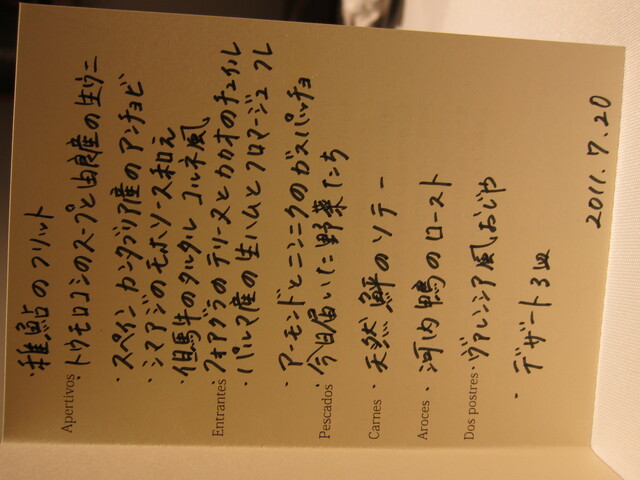 ・稚鮎のフリット
Apertivos
・トウモロコシのスープと由良産の生ウニ
・スペイン カンタブリア産のアンチョビ
・シマアジのモホソース和え
・但馬牛のタルタル コルネ風
Entrantes
・フォアグラのテリーヌとカカオのチュイル
・パルマ産の生ハムとフロマージュ フレ
・アーモンドとニンニクのガスパッチョ
Pescados
・今日届いた野菜たち
Carnes
・天然鮃のソテー
Aroces
・河内鴨のロースト
Dos postres
・ヴァレンシア風おじや
・デザート3皿
2011.7.20